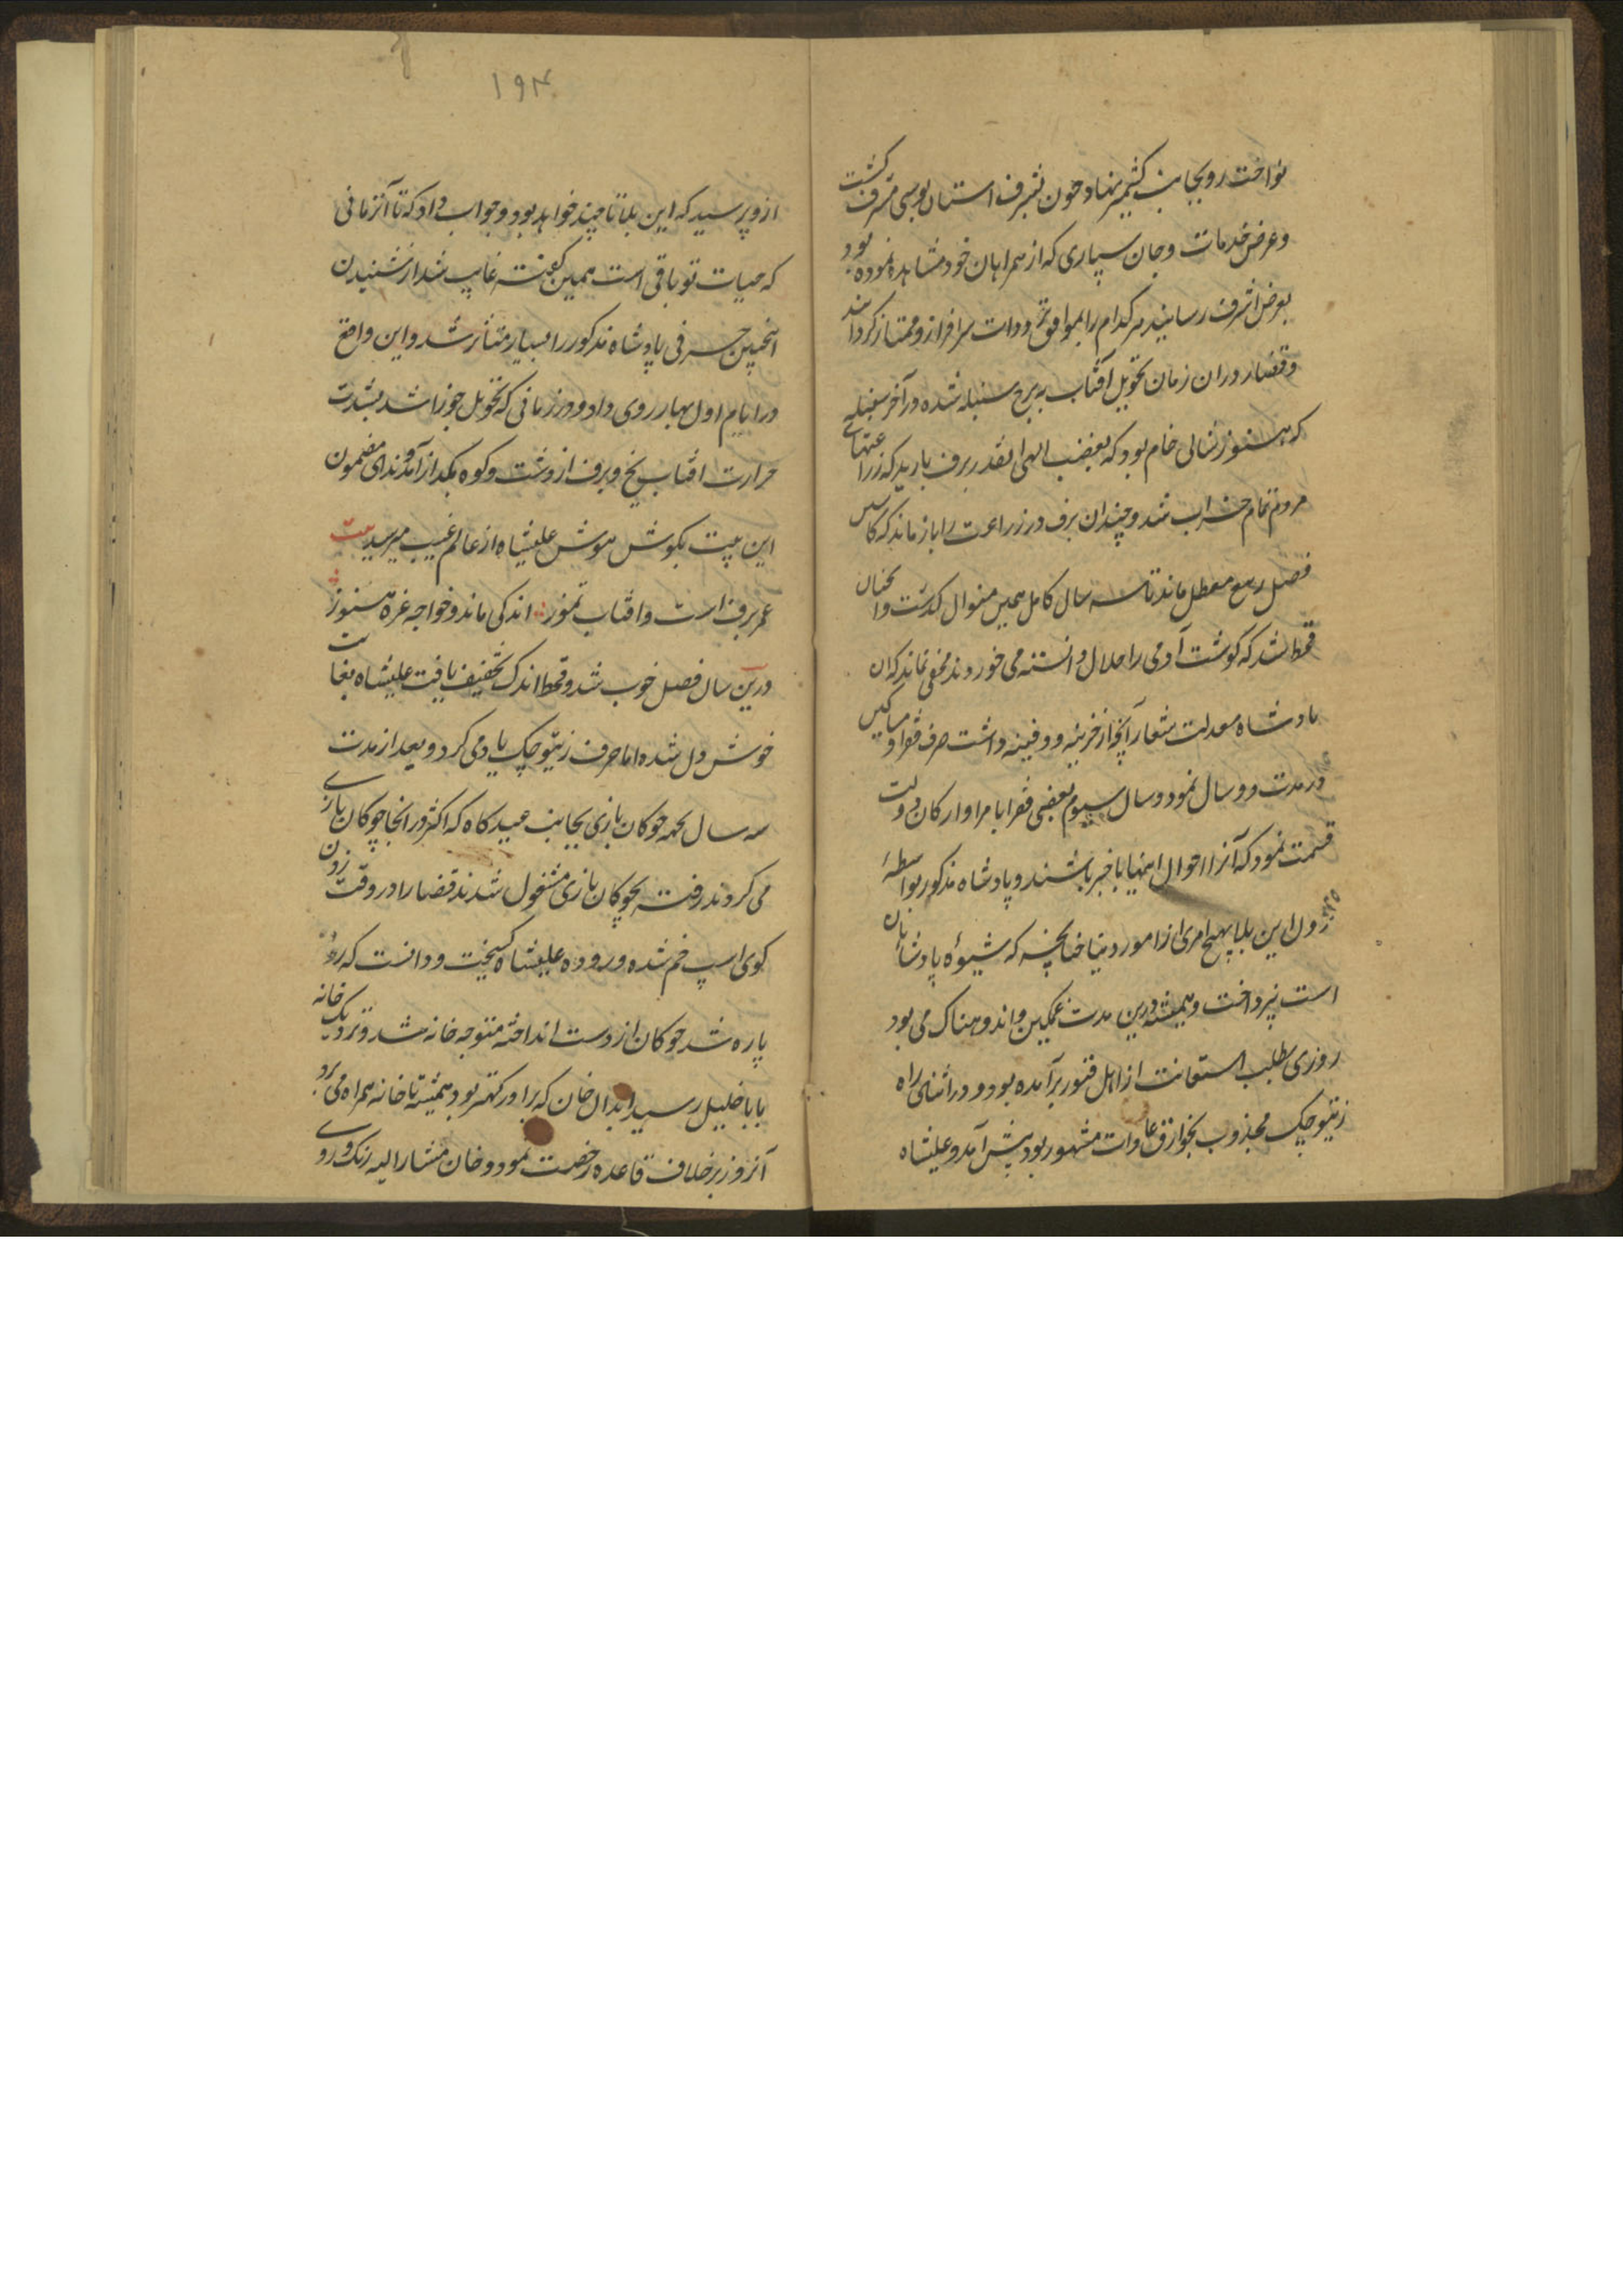 نواخت رو بجانب کشمیر نهاد و چون بشرف استان بوسی مشرف گشت
و عرض خدمات و جان سپاری که از همراهان خود مشاهده نموده بود
بعرض اشرف رسانید هر کدام را بموافق تردوات سرافراز و ممتاز کردانید
و قضا را دران زمان تحویل آفتاب به برج سنبله شده در آخر سنبله
که هنوز شالی خام بود که بغضب الهی بقدر برف بارید که زراعتهای
مردم تمام خراب شد و چندان برف در زراعت را باز ماند که کاشتن
فصل ربیع معطل ماند تا سه سال کامل همین منوال کذشت و آنچنان
قحط شد که کوشت آدمی را حلال دانسته می خوردند مخفی نماند که ان
پادشاه معدلت شعار آنچه از خزینه و دفینه داشت صرف فقرا و مساکین
در مدت دو سال نمود و سال سیوم بعضی فقرا بامرا و ارکان دولت
قسمت نمود که آنرا احوال اینها باخبر باشند و پادشاه مذکور بواسطهٔ
نزول این بلا بهیچ امری از امور دنیا چنانچه که شیوهٔ پادشاهان
است نپرداخت و همیشه درین مدت غمکین و اندوهناک می بود
روزی بطلب استعانت از اهل قبور برآمده بود و در اثنای راه
زیتیو چک مجذوب بخوارق عادات مشهور بود پیش آمد و علیشاه
۱۹۴
ازو پرسید که این بلا تا چند خواهد بود و جواب داد که تا آنزمانی
که حیات تو باقی است همین کفته غایب شد از شنیدن
اینچنین حرفی پادشاه مذکور را بسیار متأثر شد و این واقع
در ایام اول بهار روی داد و در زمانی که تحویل جوزا شد بشدت
حرارت افتاب یخ و برف از دشت و کوه بکداز آمد و ندای مضمون
این بیت بکوش هوش علیشاه از عالم غیب میرسید بیت
عمر برف است و افتاب تموز اندکی ماند و خواجه غره هنوز
درین سال فصل خوب شد و قحط اندک تخفیف یافت علیشاه بغایت
خوش دل شده اما حرف زیتیو چک یاد می کرد و بعد از مدت
سه سال بجهه چوکان بازی بجانب عیدکاه که اکثر در انجا چوکان بازی
می کردند رفته بچوکان بازی مشغول شدند قضا را در وقت زدن
کوی اسپ خم شده و روده علیشاه کسیخت و دانست که روده
پاره شد چوکان از دست انداخته متوجه خانه شد و نزدیک خانه
بابا خلیل رسید ابدال خان که برادر کهتر بود همیشه تا خانه همراه می برد
آنروز برخلاف قاعده رخصت نمود و خان مشارالیه رنک و روی